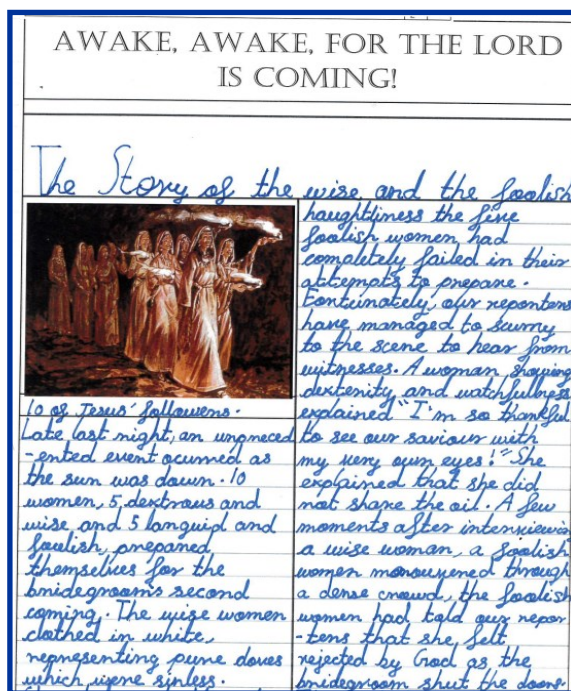 AWAKE, AWAKE, FOR THE LORD
IS COMING!
The Story of the wise and the foolish
10 of Jesus' followers.
Late last night, an unpreced
-ented event ocurred as
the sun was down. 10
women, 5 dextrous and
wise and 5 languid and
foolish, prepared
themselves for the
bridegroom's second
coming. The wise women
clothed in white,
representing pure doves
which were sinless.
haughtiness the five
foolish women had
completely failed in their
attempts to prepare.
Fortunately, our reporters
have managed to scurry
to the scene to hear from
witnesses. A woman showing
dexterity and watchfullness
explained "I'm so thankful
to see our saviour with
my very own eyes!" She
explained that she did
not share the oil. A few
moments after interviewing
a wise woman, a foolish
women through
a dense crowd, the foolish
women had told our repor
-ters that she felt
rejected by God as the
bridegroom shut the doors.